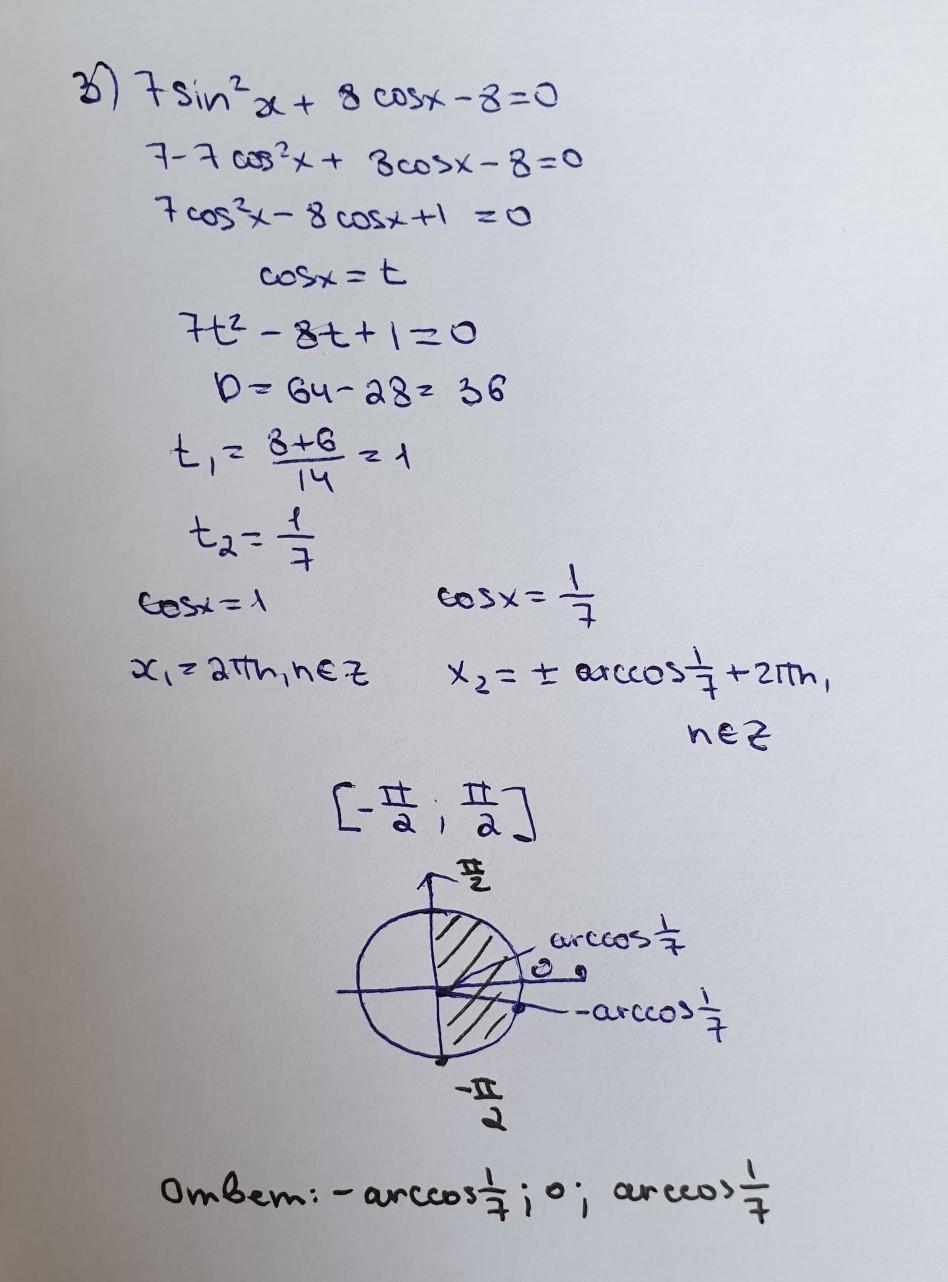 3) 7sin²x + 8cosx - 8 = 0
7 - 7cos²x + 8cosx - 8 = 0
7cos²x - 8cosx + 1 = 0
cosx = t
7t² - 8t + 1 = 0
D = 64 - 28 = 36
t₁ = (8+6)/14 = 1
t₂ = 1/7
cosx = 1 cosx = 1/7
x₁ = 2πn, n∈Z x₂ = ± arccos 1/7 + 2πn,
n∈Z
[-π/2; π/2]
π/2
arccos 1/7
0
-arccos 1/7
-π/2
Ответ: - arccos 1/7; 0; arccos 1/7